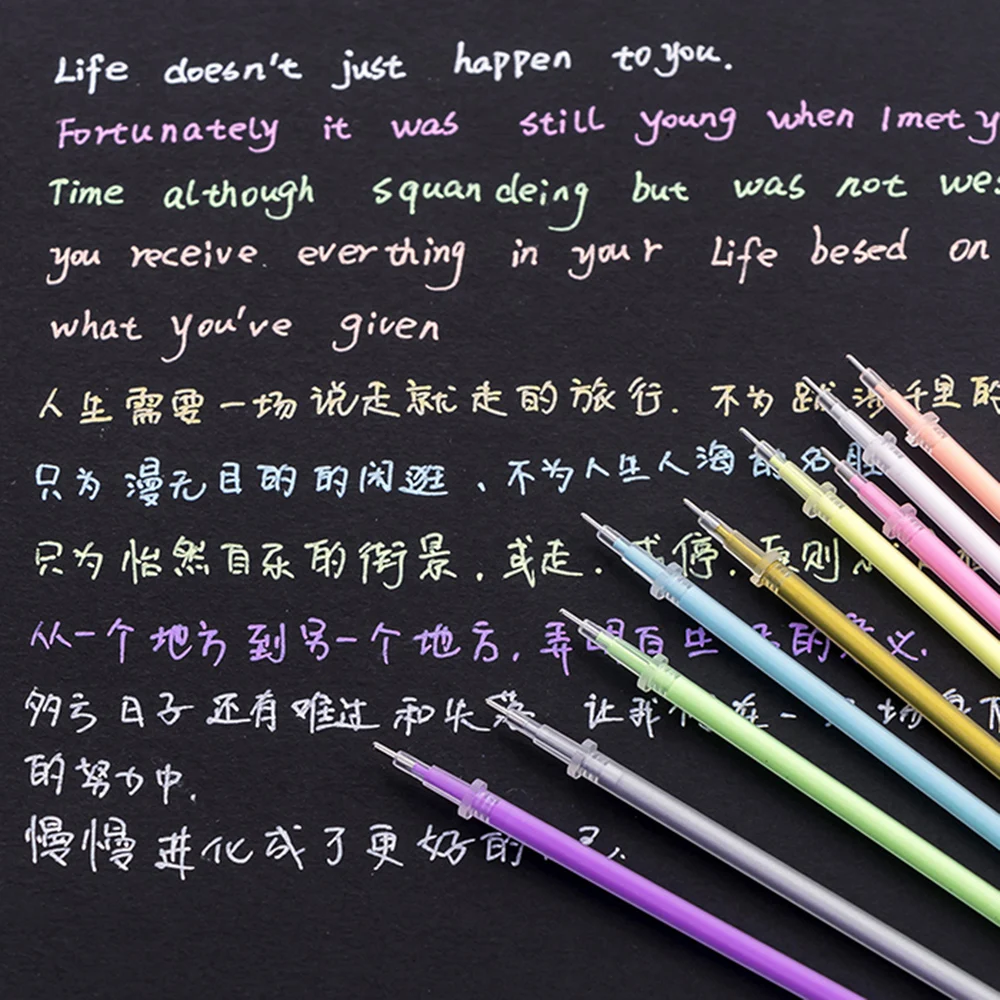 Life doesn't just happen to you.
Fortunately it was still young when I met
Time although squandeing but was not
you receive everthing in your Life besed on
what you've given
人生需要一场说走就走的旅行. 不为 千里的
只为漫无目的的闲逛、不为人生人海
只为怡然自乐的街景. 或走. 停. 则
从一个地方到另一个地方. 弄 的 义.
多亏日子还有难过和失落 让我 在一 场
的努力中.
慢慢进化成了更好的